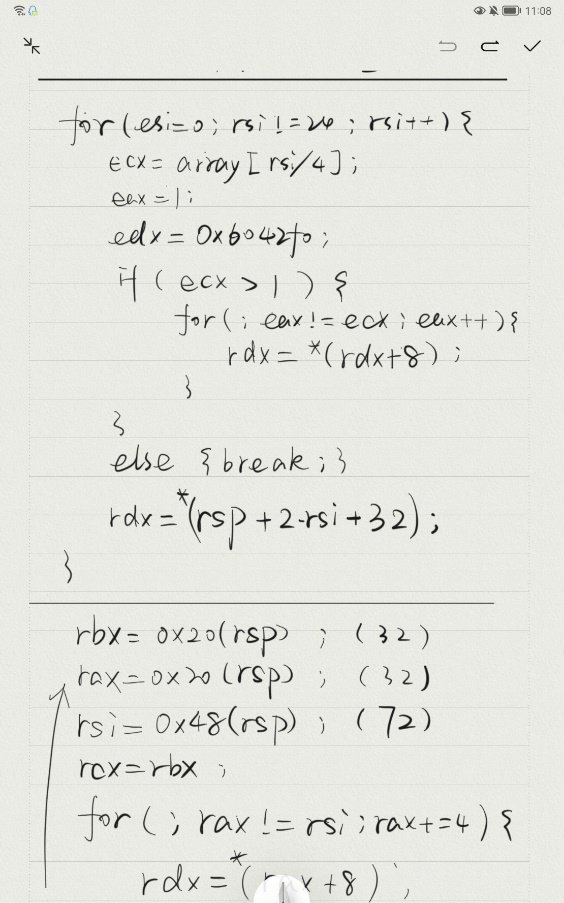 11:08
for(esi=0; rsi!=24; rsi++){
ecx= array[rsi/4];
eax=1;
edx= 0x6042f0;
if(ecx>1){
for(; eax!=ecx; eax++){
rdx= *(rdx+8);
}
}
else {break;}
rdx=*(rsp+2·rsi+32);
}
rbx= 0x20(rsp); (32)
rax=0x20(rsp); (32)
rsi= 0x48(rsp); (72)
rcx=rbx;
for(; rax!=rsi; rax+=4){
rdx=*( +8);